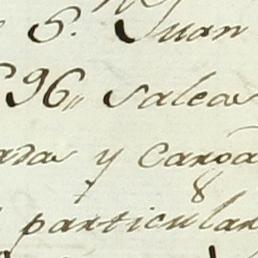 S. Juan
96,, Saleas
adas y Canoa
8
particular